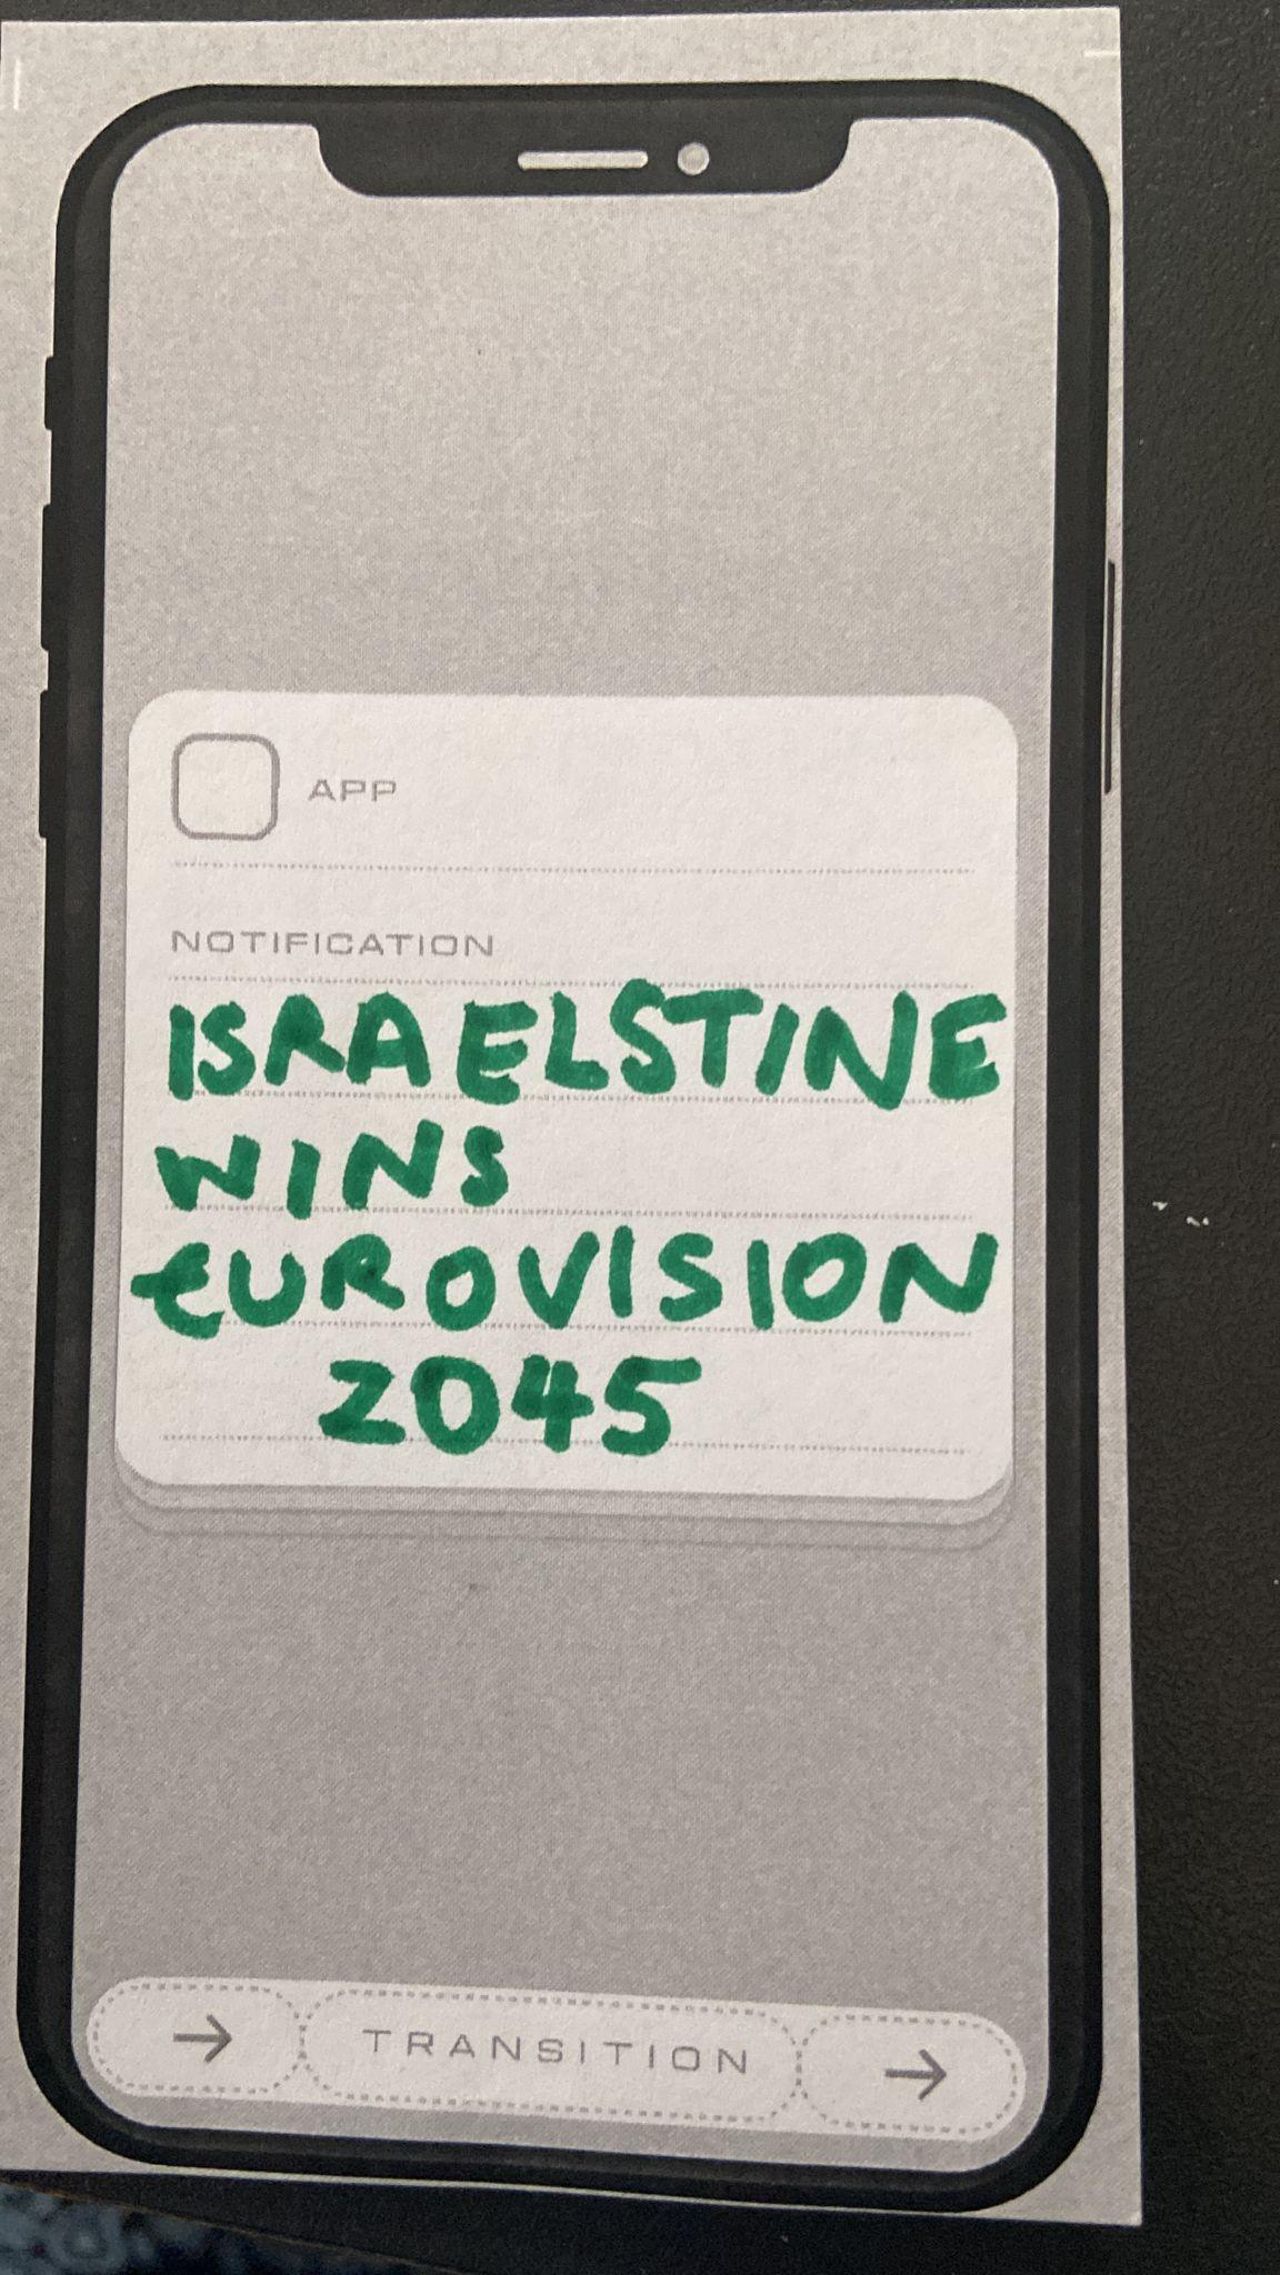 APP
NOTIFICATION
ISRAELSTINE
WINS
EUROVISION
2045
→ TRANSITION →